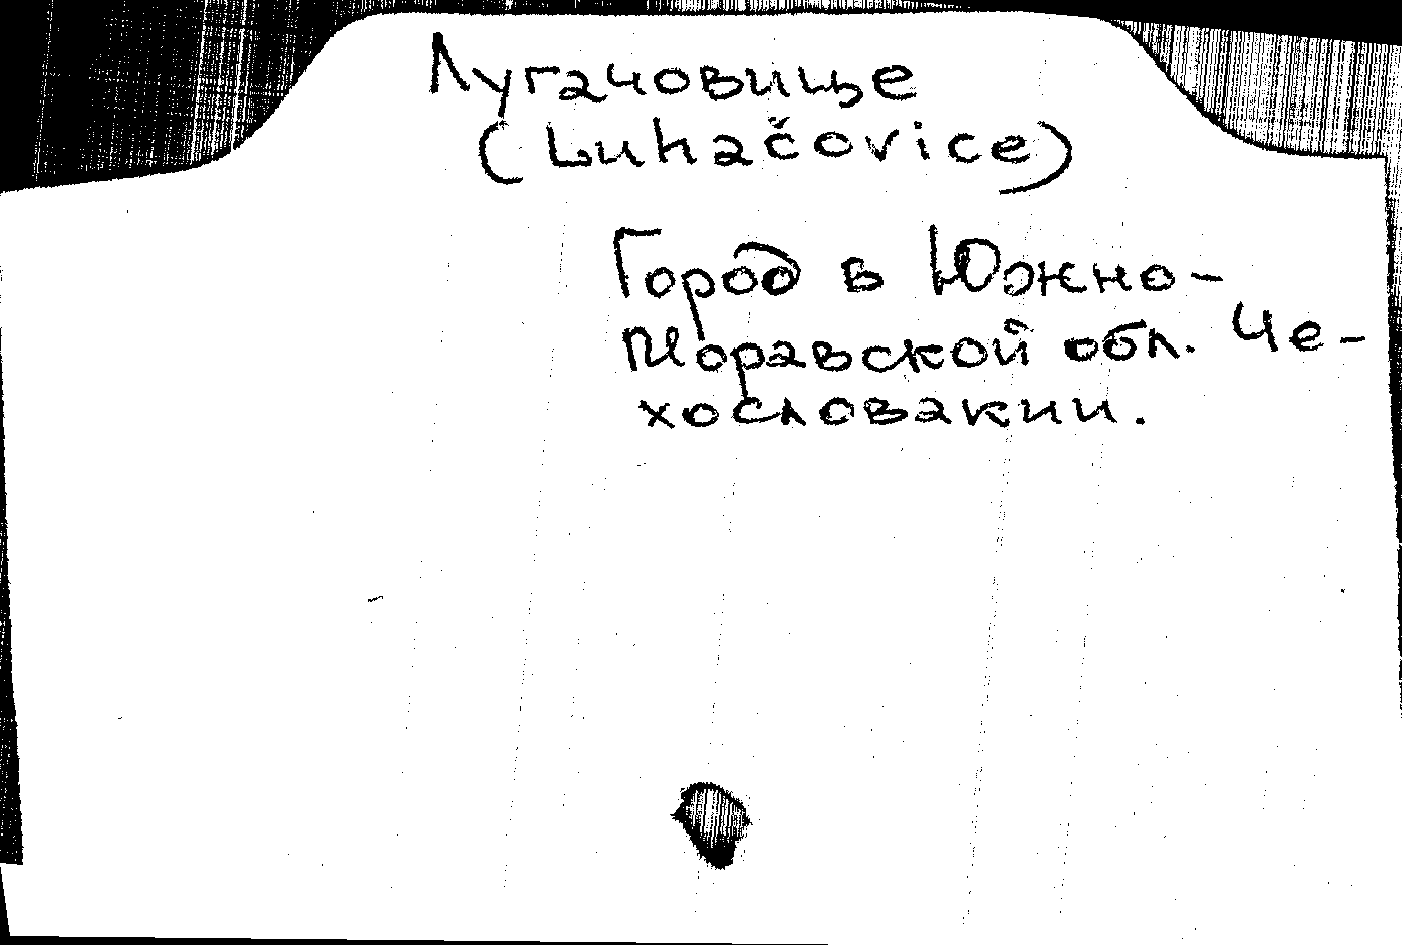 Лугачовице
(Luhačovice)
Город в Южно-
Моравской обл. Че-
хословакии.